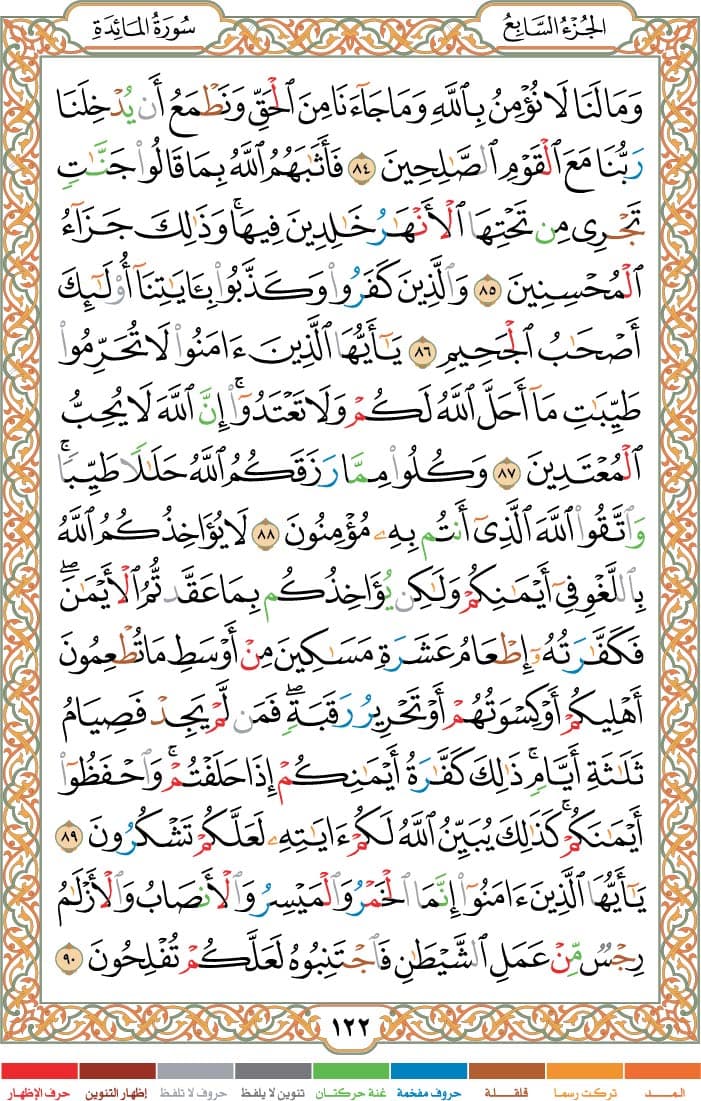 الجُزْءُ السَّابِعُ
سُورَةُ المَائِدَةِ
وَمَا لَنَا لَا نُؤْمِنُ بِٱللَّهِ وَمَا جَآءَنَا مِنَ ٱلْحَقِّ وَنَطْمَعُ أَن يُدْخِلَنَا
رَبُّنَا مَعَ ٱلْقَوْمِ ٱلصَّٰلِحِينَ ٨٤ فَأَثَٰبَهُمُ ٱللَّهُ بِمَا قَالُوا۟ جَنَّٰتٍ
تَجْرِى مِن تَحْتِهَا ٱلْأَنْهَٰرُ خَٰلِدِينَ فِيهَا ۚ وَذَٰلِكَ جَزَآءُ
ٱلْمُحْسِنِينَ ٨٥ وَٱلَّذِينَ كَفَرُوا۟ وَكَذَّبُوا۟ بِـَٔايَٰتِنَآ أُو۟لَٰٓئِكَ
أَصْحَٰبُ ٱلْجَحِيمِ ٨٦ يَٰٓأَيُّهَا ٱلَّذِينَ ءَامَنُوا۟ لَا تُحَرِّمُوا۟
طَيِّبَٰتِ مَآ أَحَلَّ ٱللَّهُ لَكُمْ وَلَا تَعْتَدُوٓا۟ ۚ إِنَّ ٱللَّهَ لَا يُحِبُّ
ٱلْمُعْتَدِينَ ٨٧ وَكُلُوا۟ مِمَّا رَزَقَكُمُ ٱللَّهُ حَلَٰلًا طَيِّبًا ۚ
وَٱتَّقُوا۟ ٱللَّهَ ٱلَّذِىٓ أَنتُم بِهِۦ مُؤْمِنُونَ ٨٨ لَا يُؤَاخِذُكُمُ ٱللَّهُ
بِٱللَّغْوِ فِىٓ أَيْمَٰنِكُمْ وَلَٰكِن يُؤَاخِذُكُم بِمَا عَقَّدتُّمُ ٱلْأَيْمَٰنَ ۖ
فَكَفَّٰرَتُهُۥٓ إِطْعَامُ عَشَرَةِ مَسَٰكِينَ مِنْ أَوْسَطِ مَا تُطْعِمُونَ
أَهْلِيكُمْ أَوْ كِسْوَتُهُمْ أَوْ تَحْرِيرُ رَقَبَةٍ ۖ فَمَن لَّمْ يَجِدْ فَصِيَامُ
ثَلَٰثَةِ أَيَّامٍ ۚ ذَٰلِكَ كَفَّٰرَةُ أَيْمَٰنِكُمْ إِذَا حَلَفْتُمْ ۚ وَٱحْفَظُوٓا۟
أَيْمَٰنَكُمْ ۚ كَذَٰلِكَ يُبَيِّنُ ٱللَّهُ لَكُمْ ءَايَٰتِهِۦ لَعَلَّكُمْ تَشْكُرُونَ ٨٩
يَٰٓأَيُّهَا ٱلَّذِينَ ءَامَنُوٓا۟ إِنَّمَا ٱلْخَمْرُ وَٱلْمَيْسِرُ وَٱلْأَنصَابُ وَٱلْأَزْلَٰمُ
رِجْسٌ مِّنْ عَمَلِ ٱلشَّيْطَٰنِ فَٱجْتَنِبُوهُ لَعَلَّكُمْ تُفْلِحُونَ ٩٠
١٢٢
المـــد تركت رسما قلقـــلة حروف مفخمة غنة حركتـان تنوين لا يلفظ حروف لا تلفظ إظهار التنوين حرف الإظهار